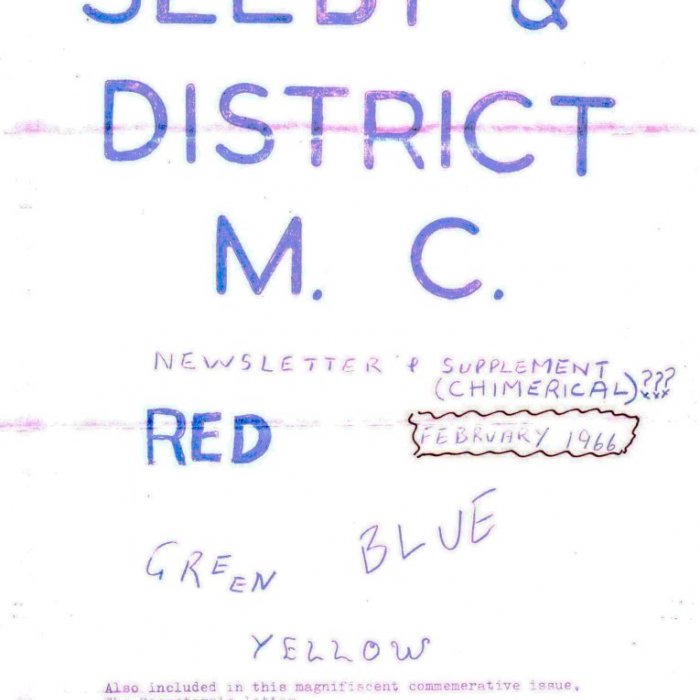 SELBY &
DISTRICT
M. C.
NEWSLETTER & SUPPLEMENT
(CHIMERICAL)???
RED
FEBRUARY 1966
BLUE
GREEN
YELLOW
Also included in this magnifiscent commemerative issue,